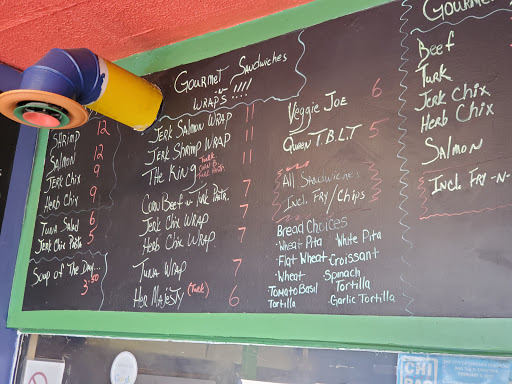 Shrimp 12
Salmon 12
Jerk Chix 9
Herb Chix 9
Tuna Salad 6
Jerk Chix Pasta 5
Soup of The Day...
3.50
Gourmet Sandwiches
-n-
Wraps!!!!
Jerk Salmon Wrap 11
Jerk Shrimp Wrap 11
The King 11
Corn Beef 7
Jerk Chix Wrap 7
Herb Chix Wrap 7
Tuna Wrap 7
Her Majesty (Turk) 6
Veggie Joe 6
Queen T.B.L.T 5
All Sandwiches
Incl. Fry/Chips
Bread Choices
·Wheat Pita White Pita
·Flat Wheat Croissant
·Wheat Spinach
Tortilla
·Tomato Basil
Tortilla
Garlic Tortilla
Gourme
Beef
Turk
Jerk Chix
Herb Chix
Salmon
Incl. Fry -n-
CHI